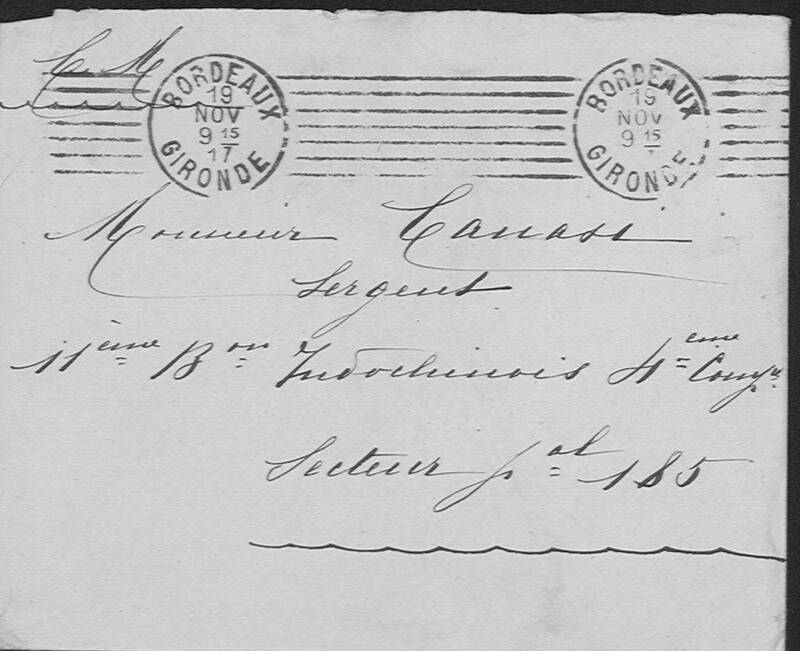 C. M.
BORDEAUX
19
NOV
9 15
17
GIRONDE
BORDEAUX
19
NOV
9 15
GIRONDE
Monsieur Canasi
Sergent
11ème Bon Indochinois 4ème Compie
Secteur pal 185